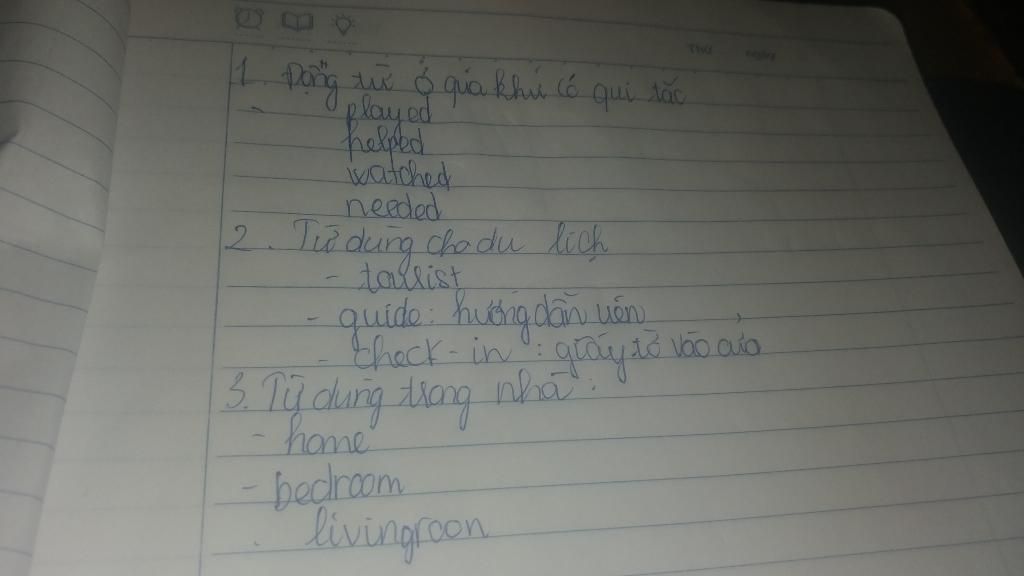 THỨ NGÀY
1. Động từ ở quá khứ có qui tắc
- played
helped
watched
needed
2. Từ dùng cho du lịch
- tourist
- guide: hướng dẫn viên
- check-in: giấy tờ vào cửa
3. Từ dùng trong nhà:
- home
- bedroom
livingroon